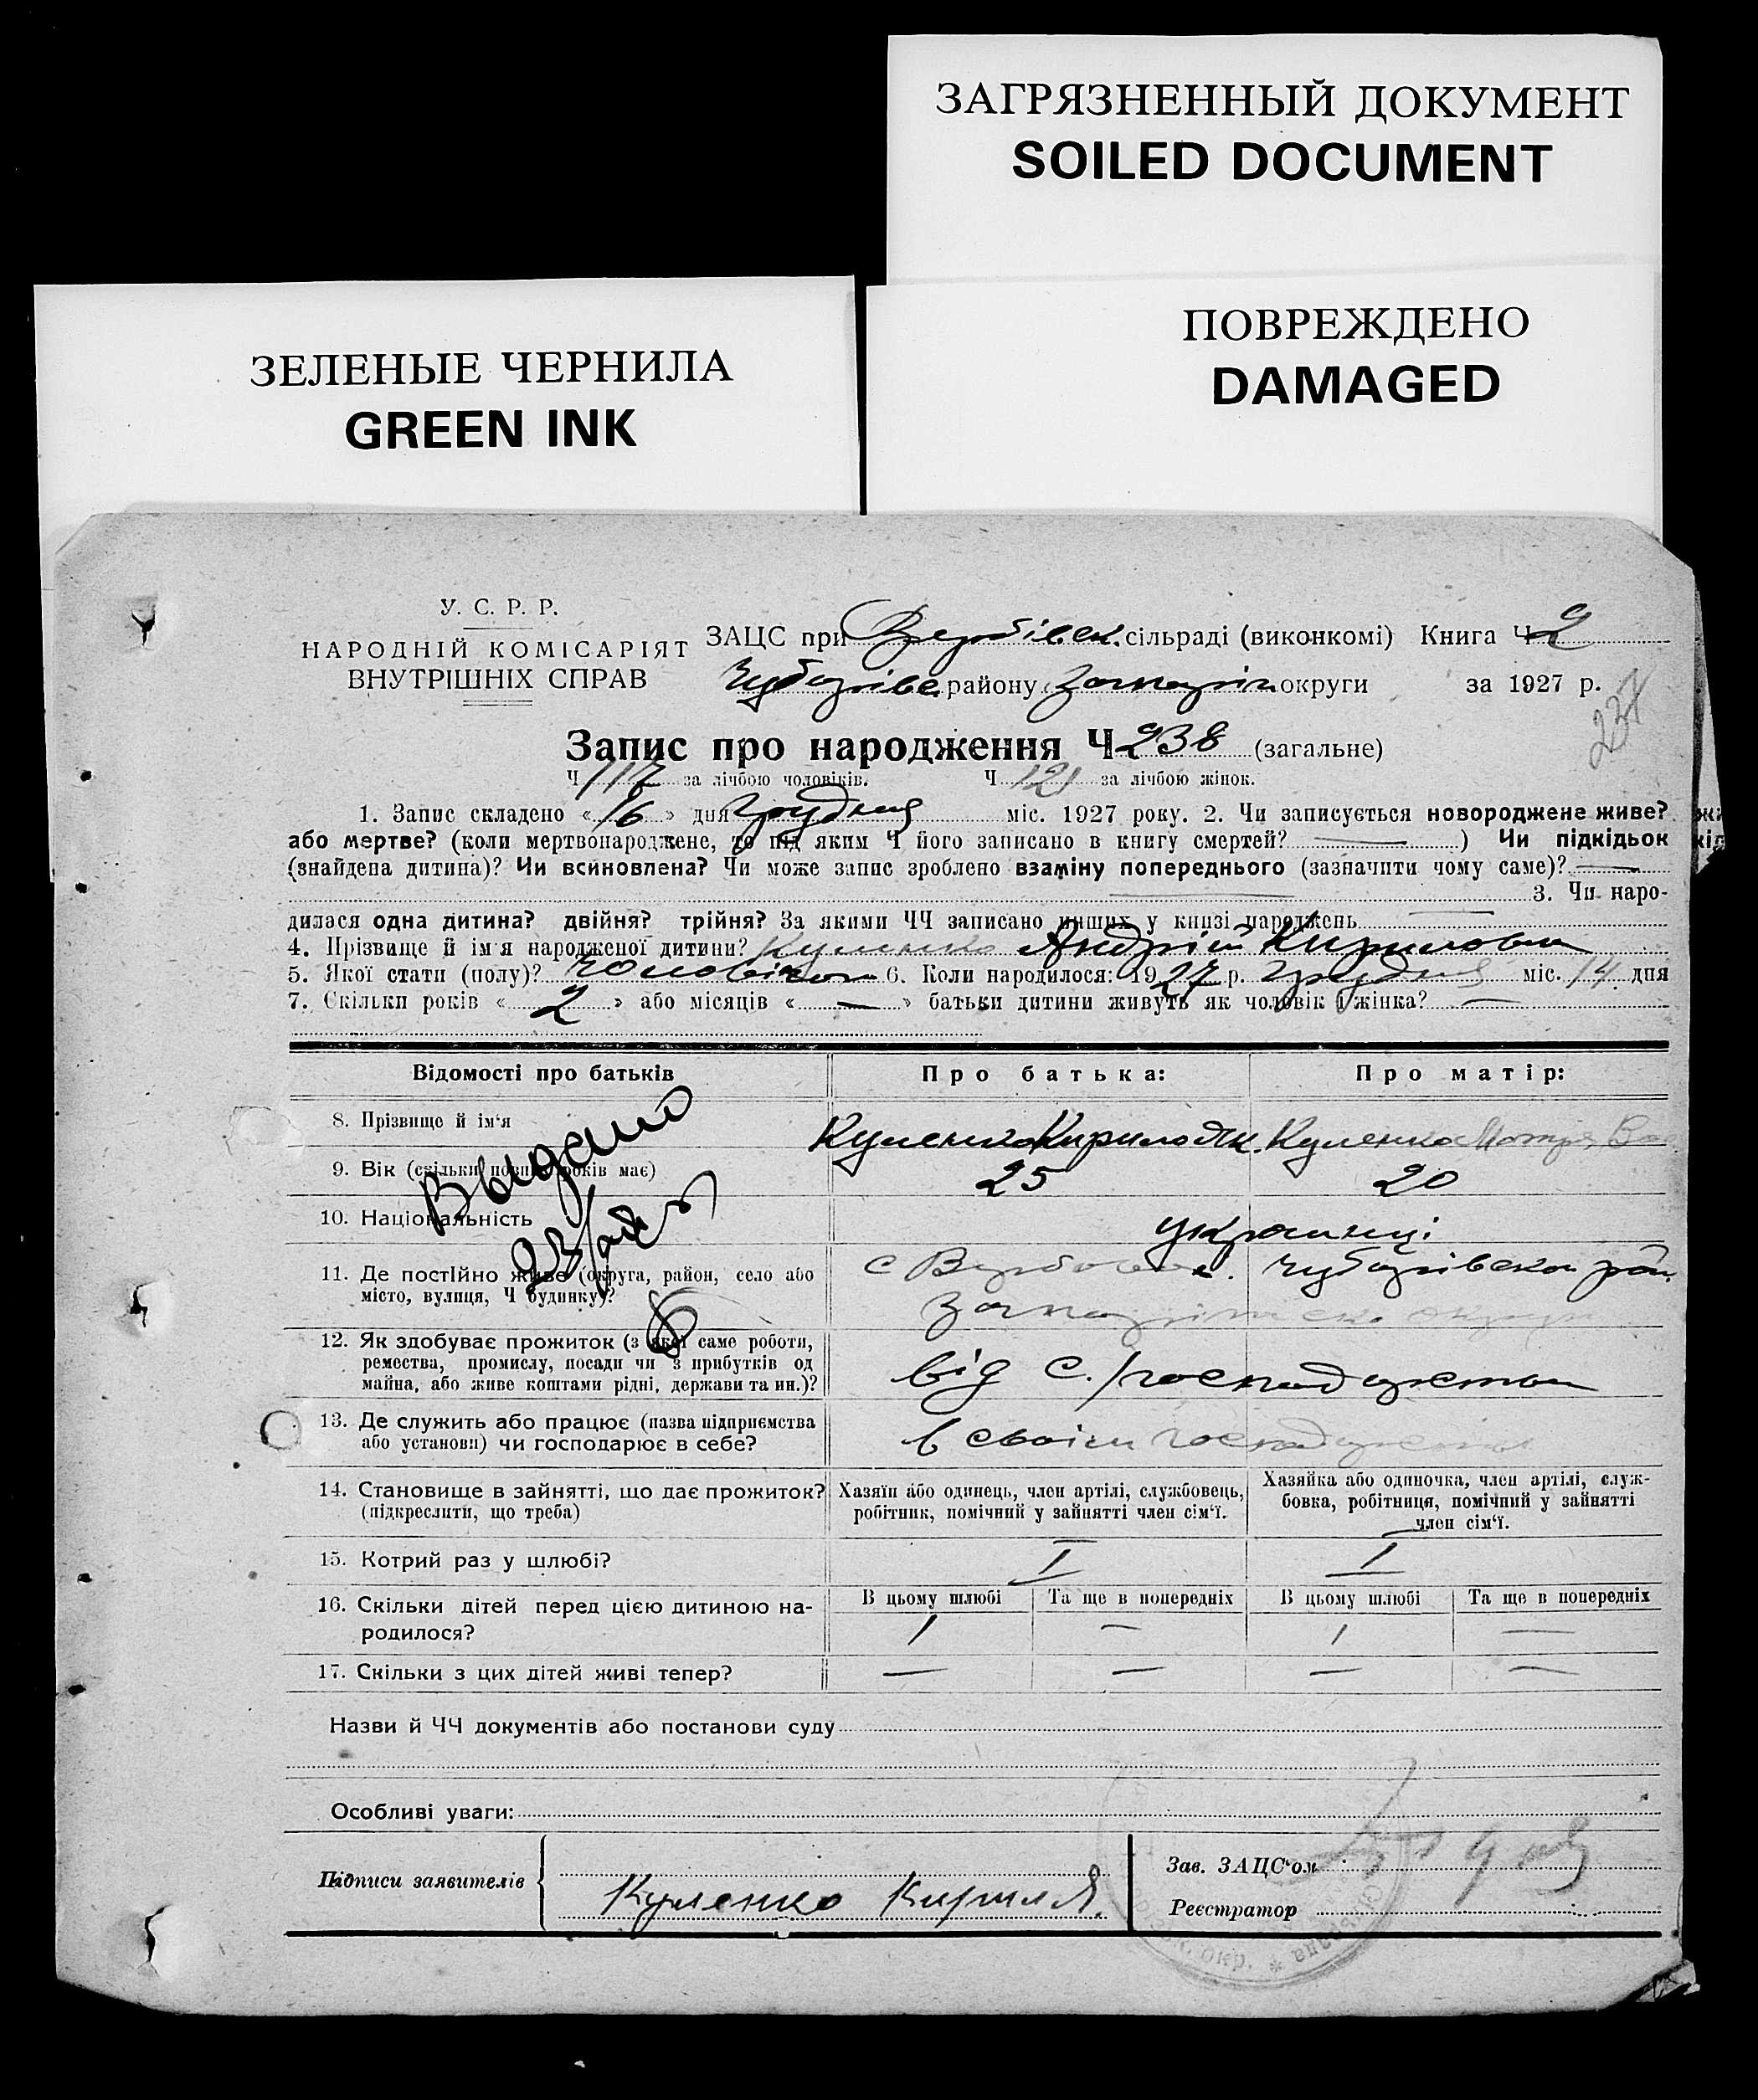 ЗАГРЯЗНЕННЫЙ ДОКУМЕНТ
SOILED DOCUMENT
ПОВРЕЖДЕНО
DAMAGED
ЗЕЛЕНЫЕ ЧЕРНИЛА
GREEN INK
У. С. Р. Р.
НАРОДНІЙ КОМІСАРІЯТ
ВНУТРІШНІХ СПРАВ
ЗАЦС при Вербівск. сільраді (виконкомі) Книга Ч 2
Чубарівс. району округи за 1927 р.
237
Запис про народження Ч 238 (загальне)
Ч 117 за лічбою чоловіків. Ч 121 за лічбою жінок.
1. Запис складено « 16 » дня грудня міс. 1927 року. 2. Чи записується новороджене живе?
або мертве? (коли мертвонароджене, то під яким Ч його записано в книгу смертей? — ) Чи підкідьок
(знайдена дитина)? Чи всиновлена? Чи може запис зроблено взаміну попереднього (зазначити чому саме)? —
3. Чи наро-
дилася одна дитина? двійня? трійня? За якими ЧЧ записано инших у книзі народжень —
4. Прізвище й ім'я народженої дитини? Куленко Андрій Кирилович
5. Якої стати (полу)? 6. Коли народилося: 1927 р. грудня міс. 14 дня
7. Скільки років « 2 » або місяців « — » батьки дитини живуть як чоловік і жінка? —
Відомості про батьків Про батька: Про матір:
8. Прізвище й ім'я Куленко Кирило Як. Куленко Мотря Вас
9. Вік (скільки повних років має) 25 20
10. Національність українці
Выдано
23/
11. Де постійно живе (округа, район, село або
місто, вулиця, Ч будинку)?
с Чубарівсько рай.
12. Як здобуває прожиток (з якої саме роботи,
ремества, промислу, посади чи з прибутків од
майна, або живе коштами рідні, держави та ин.)?
від с./господарства
13. Де служить або працює (назва підприємства
або установи) чи господарює в себе?
в своїм господарстві
14. Становище в зайнятті, що дає прожиток?
(підкреслити, що треба)
Хазяїн або одинець, член артілі, службовець,
робітник, помічний у зайнятті член сім'ї.
Хазяйка або одиночка, член артілі, служ-
бовка, робітниця, помічний у зайнятті
член сім'ї.
15. Котрий раз у шлюбі? I 1
16. Скільки дітей перед цією дитиною на-
родилося?
В цьому шлюбі Та ще в попередніх В цьому шлюбі Та ще в попередніх
1 — 1 —
17. Скільки з цих дітей живі тепер? — — — —
Назви й ЧЧ документів або постанови суду
Особливі уваги:
Підписи заявителів
Куленко Кирил Я.
Зав. ЗАЦС'ом
Реєстратор
окр. * сільрада